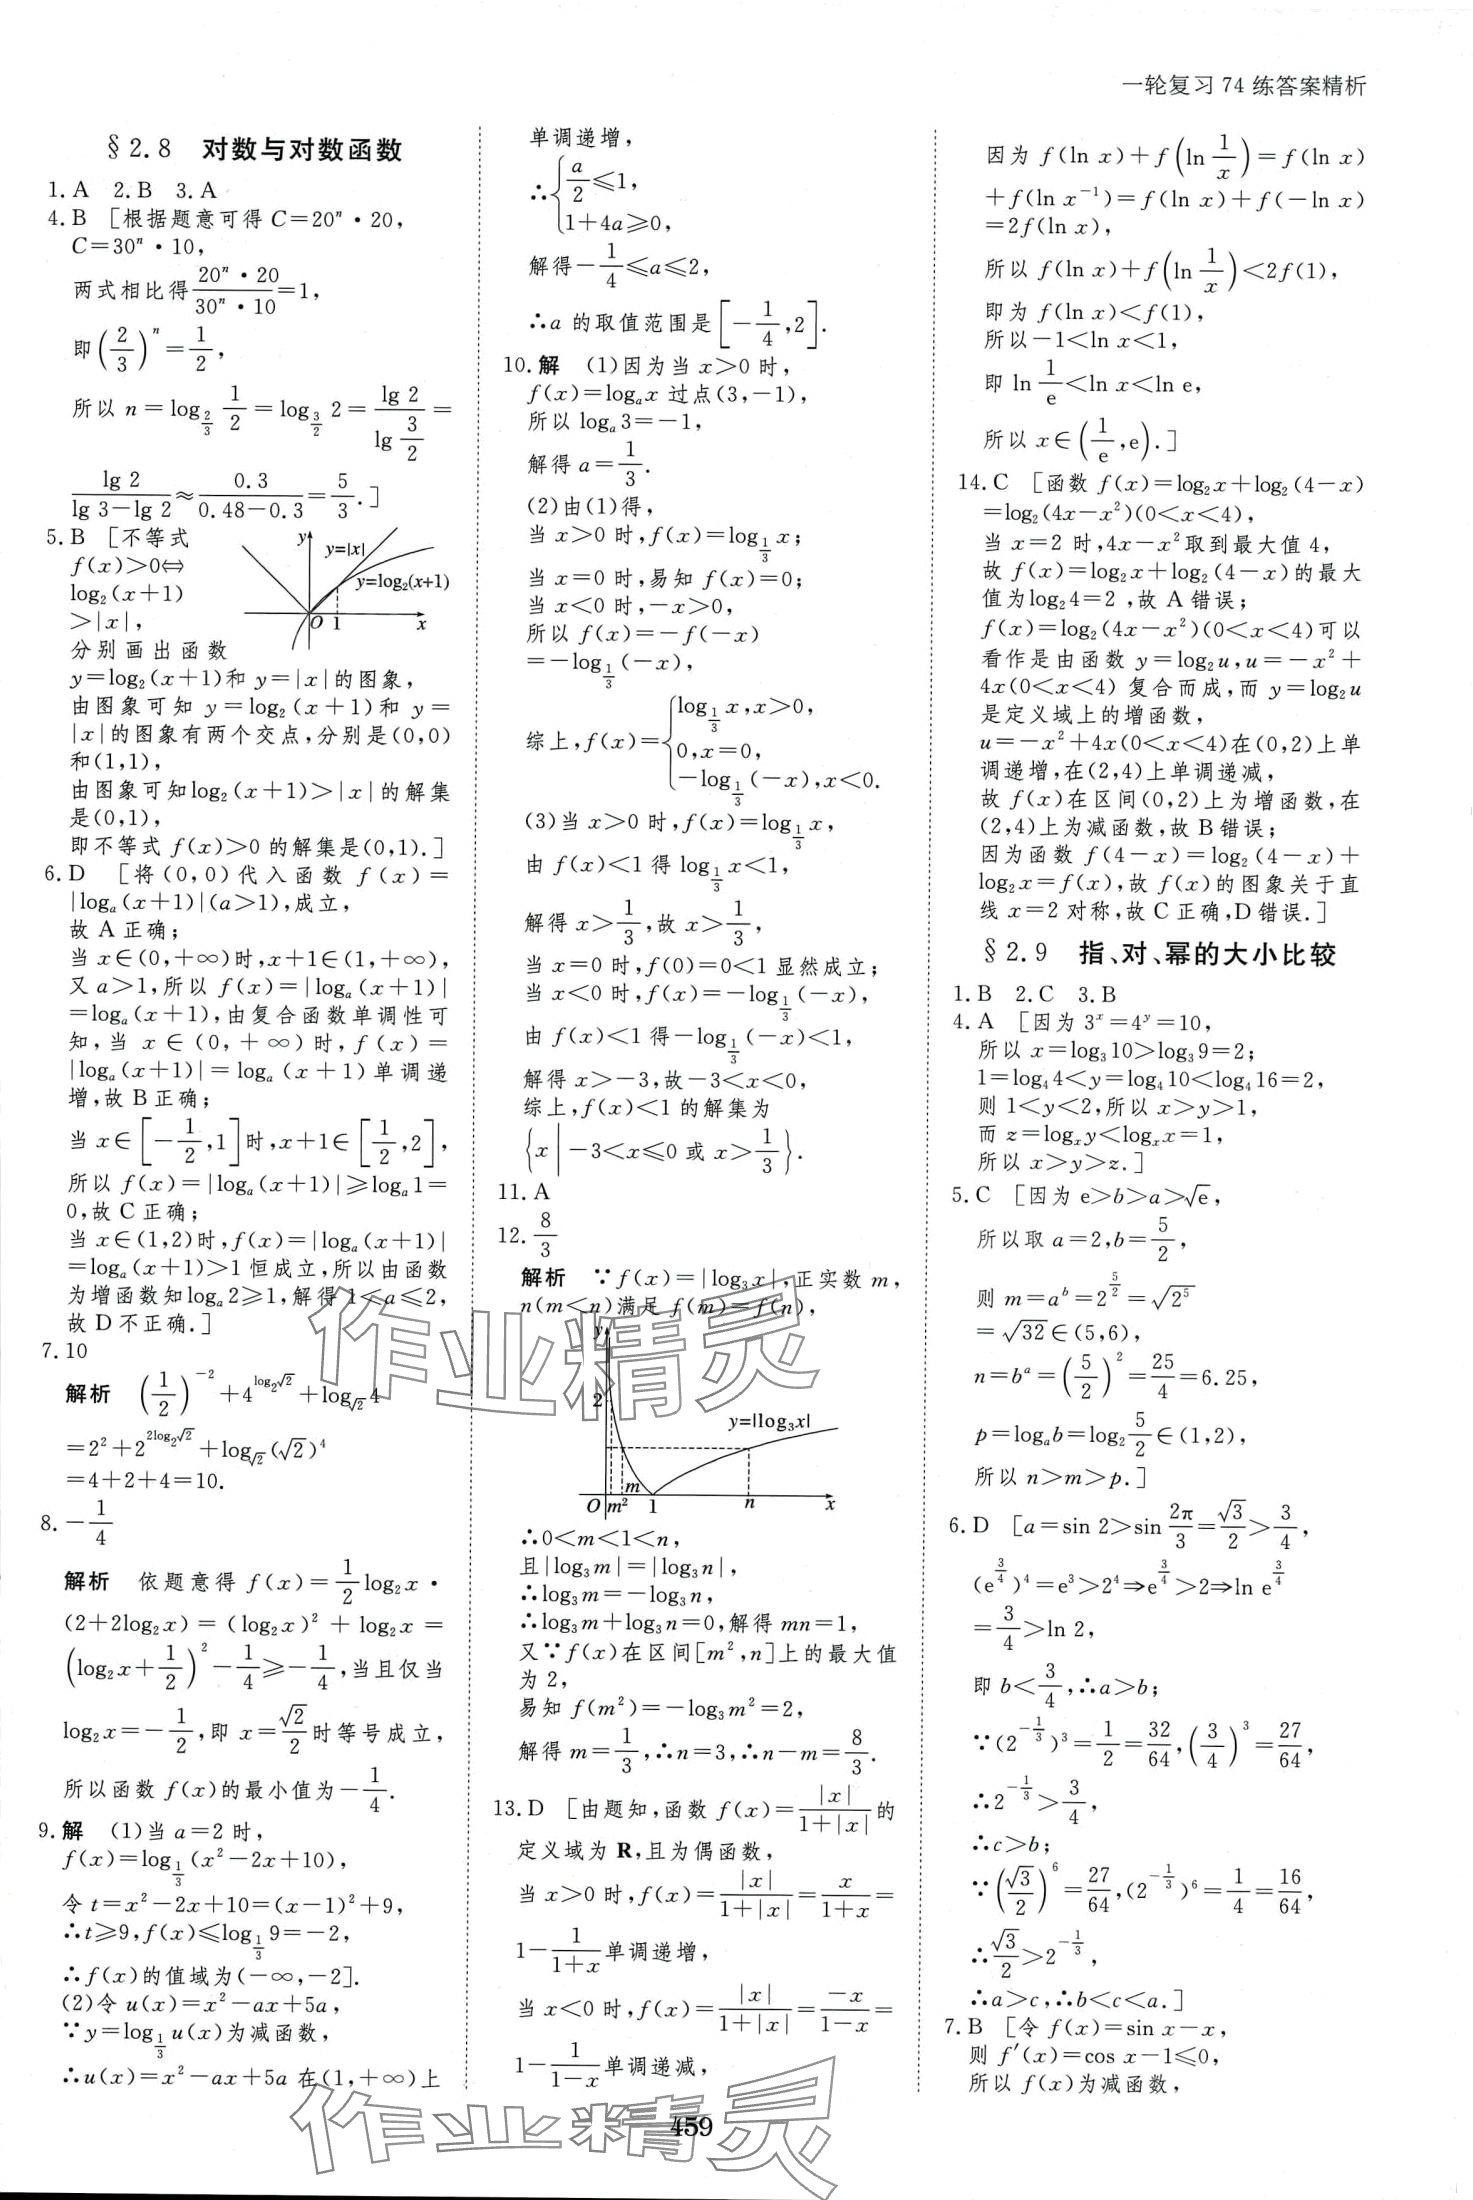 一轮复习 74 练答案精析
§2.8 对数与对数函数
1.A 2.B 3.A
4.B [根据题意可得 C=20ⁿ·20,
C=30ⁿ·10,
两式相比得 (20ⁿ·20)/(30ⁿ·10)=1,
即(2/3)ⁿ=1/2,
所以 n=log_{2/3} 1/2=log_{3/2} 2=lg 2/lg(3/2)=
lg 2/(lg 3−lg 2)≈0.3/(0.48−0.3)=5/3.]
5.B [不等式
f(x)>0⇔
log₂(x+1)
>|x|,
y
y=|x|
y=log₂(x+1)
O 1 x
分别画出函数
y=log₂(x+1)和 y=|x|的图象,
由图象可知 y=log₂(x+1)和 y=
|x|的图象有两个交点,分别是(0,0)
和(1,1),
由图象可知log₂(x+1)>|x|的解集
是(0,1),
即不等式 f(x)>0 的解集是(0,1).]
6.D [将(0,0)代入函数 f(x)=
|logₐ(x+1)|(a>1),成立,
故 A 正确;
当 x∈(0,+∞)时,x+1∈(1,+∞),
又 a>1,所以 f(x)=|logₐ(x+1)|
=logₐ(x+1),由复合函数单调性可
知,当 x∈(0,+∞)时,f(x)=
|logₐ(x+1)|=logₐ(x+1)单调递
增,故 B 正确;
当 x∈[−1/2,1]时,x+1∈[1/2,2],
所以 f(x)=|logₐ(x+1)|≥logₐ1=
0,故 C 正确;
当 x∈(1,2)时,f(x)=|logₐ(x+1)|
=logₐ(x+1)>1 恒成立,所以由函数
为增函数知logₐ2≥1,解得 1<a≤2,
故 D 不正确.]
7.10
解析 (1/2)^{−2}+4^{log₂√2}+log_{√2}4
=2²+2^{2log₂√2}+log_{√2}(√2)⁴
=4+2+4=10.
8.−1/4
解析 依题意得 f(x)=1/2 log₂x·
(2+2log₂x)=(log₂x)²+log₂x=
(log₂x+1/2)²−1/4≥−1/4,当且仅当
log₂x=−1/2,即 x=√2/2时等号成立,
所以函数 f(x)的最小值为−1/4.
9.解 (1)当 a=2 时,
f(x)=log_{1/3}(x²−2x+10),
令 t=x²−2x+10=(x−1)²+9,
∴t≥9,f(x)≤log_{1/3}9=−2,
∴f(x)的值域为(−∞,−2].
(2)令 u(x)=x²−ax+5a,
∵y=log_{1/3}u(x)为减函数,
∴u(x)=x²−ax+5a 在(1,+∞)上
单调递增,
∴{a/2≤1,
1+4a≥0,
解得−1/4≤a≤2,
∴a 的取值范围是[−1/4,2].
10.解 (1)因为当 x>0 时,
f(x)=logₐx 过点(3,−1),
所以 logₐ3=−1,
解得 a=1/3.
(2)由(1)得,
当 x>0 时,f(x)=log_{1/3}x;
当 x=0 时,易知 f(x)=0;
当 x<0 时,−x>0,
所以 f(x)=−f(−x)
=−log_{1/3}(−x),
综上,f(x)={log_{1/3}x,x>0,
0,x=0,
−log_{1/3}(−x),x<0.
(3)当 x>0 时,f(x)=log_{1/3}x,
由 f(x)<1 得 log_{1/3}x<1,
解得 x>1/3,故 x>1/3,
当 x=0 时,f(0)=0<1 显然成立;
当 x<0 时,f(x)=−log_{1/3}(−x),
由 f(x)<1 得−log_{1/3}(−x)<1,
解得 x>−3,故−3<x<0,
综上,f(x)<1 的解集为
{x|−3<x≤0 或 x>1/3}.
11.A
12.8/3
解析 ∵f(x)=|log₃x|,正实数 m,
n(m<n)满足 f(m)=f(n),
y
2
y=|log₃x|
O m² m 1 n x
∴0<m<1<n,
且|log₃m|=|log₃n|,
∴log₃m=−log₃n,
∴log₃m+log₃n=0,解得 mn=1,
又∵f(x)在区间[m²,n]上的最大值
为 2,
易知 f(m²)=−log₃m²=2,
解得 m=1/3,∴n=3,∴n−m=8/3.
13.D [由题知,函数 f(x)=|x|/(1+|x|)的
定义域为 R,且为偶函数,
当 x>0 时,f(x)=|x|/(1+|x|)=x/(1+x)=
1−1/(1+x)单调递增,
当 x<0 时,f(x)=|x|/(1+|x|)=−x/(1−x)=
1−1/(1−x)单调递减,
因为 f(ln x)+f(ln 1/x)=f(ln x)
+f(ln x⁻¹)=f(ln x)+f(−ln x)
=2f(ln x),
所以 f(ln x)+f(ln 1/x)<2f(1),
即为 f(ln x)<f(1),
所以−1<ln x<1,
即 ln 1/e<ln x<ln e,
所以 x∈(1/e,e).]
14.C [函数 f(x)=log₂x+log₂(4−x)
=log₂(4x−x²)(0<x<4),
当 x=2 时,4x−x²取到最大值 4,
故 f(x)=log₂x+log₂(4−x)的最大
值为log₂4=2,故 A 错误;
f(x)=log₂(4x−x²)(0<x<4)可以
看作是由函数 y=log₂u,u=−x²+
4x(0<x<4)复合而成,而 y=log₂u
是定义域上的增函数,
u=−x²+4x(0<x<4)在(0,2)上单
调递增,在(2,4)上单调递减,
故 f(x)在区间(0,2)上为增函数,在
(2,4)上为减函数,故 B 错误;
因为函数 f(4−x)=log₂(4−x)+
log₂x=f(x),故 f(x)的图象关于直
线 x=2 对称,故 C 正确,D 错误.]
§2.9 指、对、幂的大小比较
1.B 2.C 3.B
4.A [因为 3ˣ=4ʸ=10,
所以 x=log₃10>log₃9=2;
1=log₄4<y=log₄10<log₄16=2,
则 1<y<2,所以 x>y>1,
而 z=logₓy<logₓx=1,
所以 x>y>z.]
5.C [因为 e>b>a>√e,
所以取 a=2,b=5/2,
则 m=aᵇ=2^{5/2}=√(2⁵)
=√32∈(5,6),
n=bᵃ=(5/2)²=25/4=6.25,
p=logₐb=log₂5/2∈(1,2),
所以 n>m>p.]
6.D [a=sin 2>sin 2π/3=√3/2>3/4,
(e^{3/4})⁴=e³>2⁴⇒e^{3/4}>2⇒ln e^{3/4}
=3/4>ln 2,
即 b<3/4,∴a>b;
∵(2^{−1/3})³=1/2=32/64,(3/4)³=27/64,
∴2^{−1/3}>3/4,
∴c>b;
∵(√3/2)⁶=27/64,(2^{−1/3})⁶=1/4=16/64,
∴√3/2>2^{−1/3},
∴a>c,∴b<c<a.]
7.B [令 f(x)=sin x−x,
则 f′(x)=cos x−1≤0,
所以 f(x)为减函数,
459
作业精灵
作业精灵